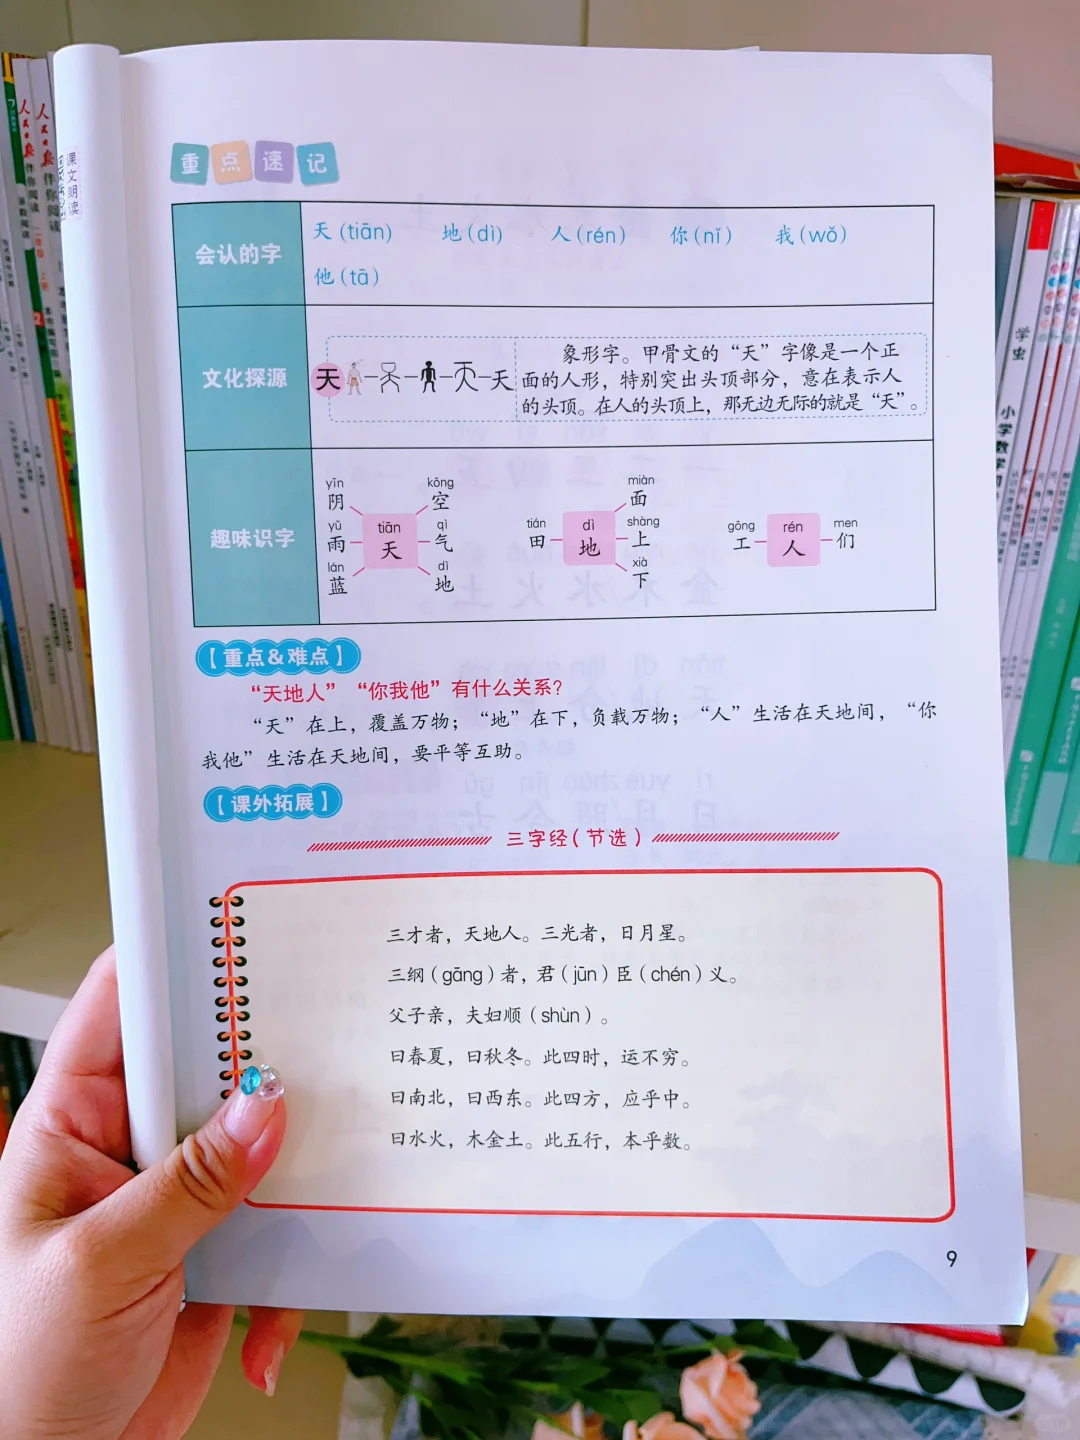 重点速记
会认的字
天(tiān) 地(dì) 人(rén) 你(nǐ) 我(wǒ)
他(tā)
文化探源
天 天
象形字。甲骨文的“天”字像是一个正
面的人形，特别突出头顶部分，意在表示人
的头顶。在人的头顶上，那无边无际的就是“天”。
趣味识字
yīn kōng
阴 空
yǔ tiān qì
雨 天 气
lán dì
蓝 地
miàn
面
tián dì shàng
田 地 上
xià
下
gōng rén men
工 人 们
【重点&难点】
“天地人”“你我他”有什么关系？
“天”在上，覆盖万物；“地”在下，负载万物；“人”生活在天地间，“你
我他”生活在天地间，要平等互助。
【课外拓展】
三字经(节选)
三才者，天地人。三光者，日月星。
三纲(gāng)者，君(jūn)臣(chén)义。
父子亲，夫妇顺(shùn)。
曰春夏，曰秋冬。此四时，运不穷。
曰南北，曰西东。此四方，应乎中。
曰水火，木金土。此五行，本乎数。
9
课文朗读
人民日报 伴你阅读
人民日报 伴你阅读
小学数学